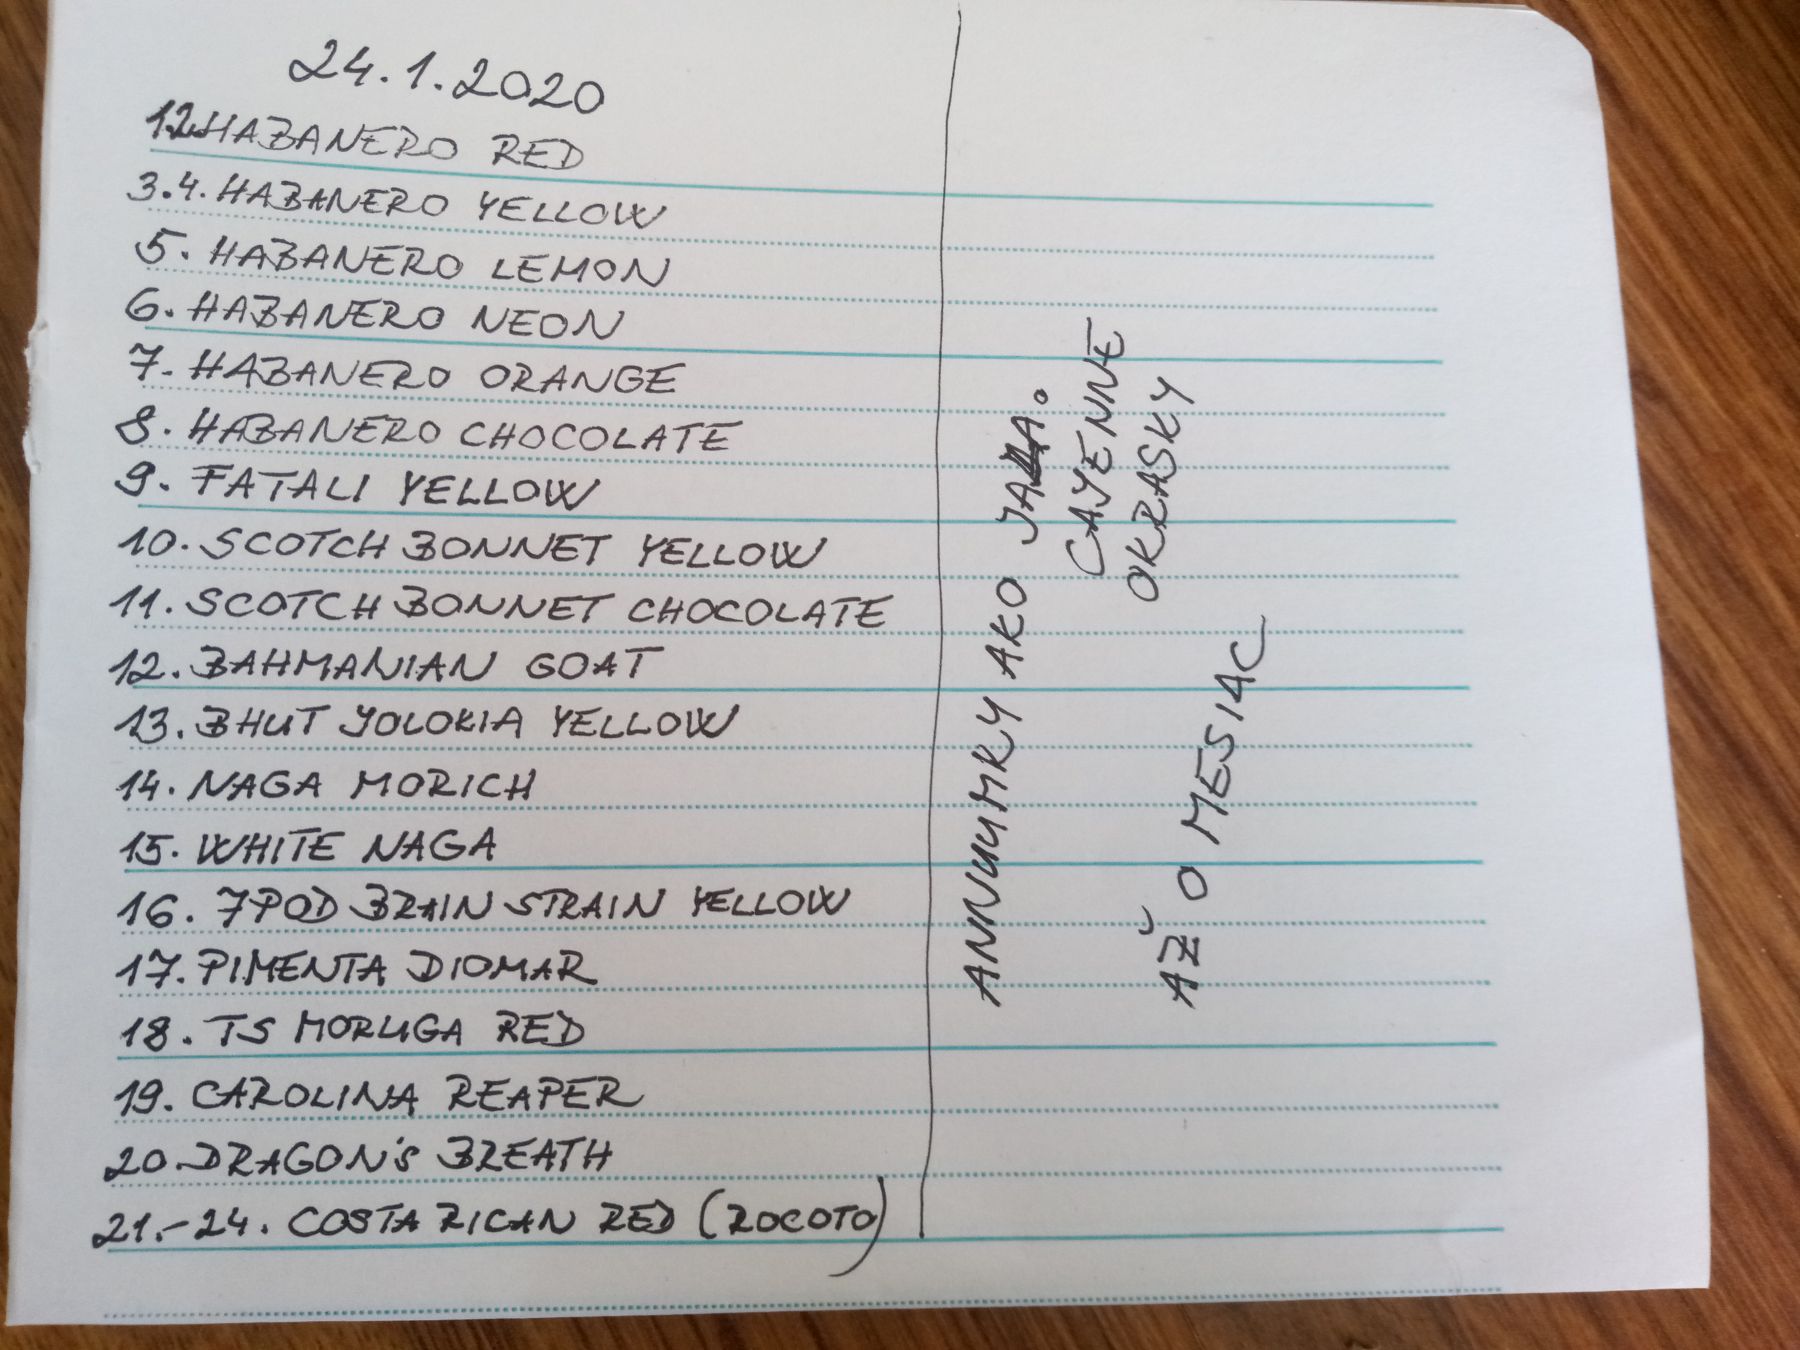 24.1.2020
1.2. HABANERO RED
3.4. HABANERO YELLOW
5. HABANERO LEMON
6. HABANERO NEON
7. HABANERO ORANGE
8. HABANERO CHOCOLATE
9. FATALI YELLOW
10. SCOTCH BONNET YELLOW
11. SCOTCH BONNET CHOCOLATE
12. BAHMANIAN GOAT
13. BHUT JOLOKIA YELLOW
14. NAGA MORICH
15. WHITE NAGA
16. 7POD BRAIN STRAIN YELLOW
17. PIMENTA DIOMAR
18. TS MORUGA RED
19. CAROLINA REAPER
20. DRAGON'S BREATH
21.-24. COSTA RICAN RED (ROCOTO)
ANNUUMKY AKO
CAYENNE
OKRASKY
AŽ O MESIAC